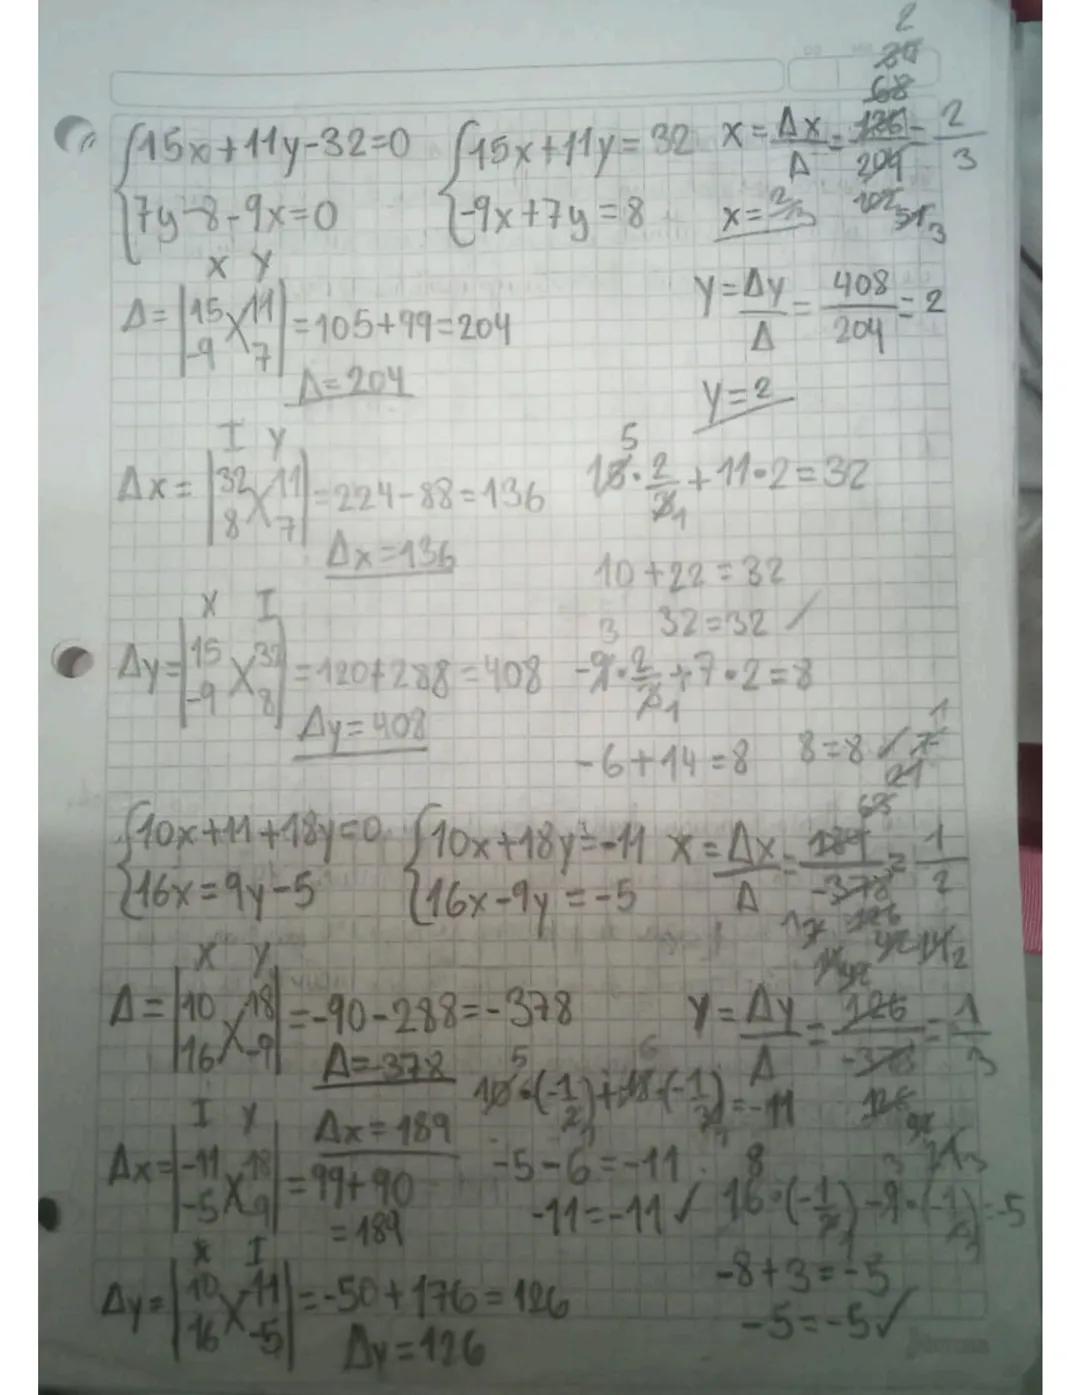 {15x+11y-32=0
{7y-8-9x=0
{15x+11y=32
{-9x+7y=8
x=Δx/Δ=136/204=2/3
x=2/3
X Y
Δ=|15 11|=105+99=204
|-9 7|
Δ=204
Y=Δy/Δ=408/204=2
Y=2
I Y
Δx=|32 11|=224-88=136
|8 7|
Δx=136
15·2/3+11·2=32
10+22=32
32=32 ✓
X I
Δy=|15 32|=120+288=408
|-9 8|
Δy=408
-9·2/3+7·2=8
-6+14=8 8=8 ✓
{10x+11+18y=0
{16x=9y-5
{10x+18y=-11
{16x-9y=-5
x=Δx/Δ=189/-378=1/2
X Y
Δ=|10 18|=-90-288=-378
|16 -9|
Δ=-378
Y=Δy/Δ=126/-378=1/3
I Y
Δx=|-11 18|=99+90
|-5 9|
=189
Δx=189
10·(-1/2)+18·(-1/3)=-11
-5-6=-11
-11=-11 ✓
16·(-1/2)-9·(-1/3)=-5
-8+3=-5
-5=-5 ✓
X I
Δy=|10 -11|=-50+176=126
|16 -5|
Δy=126